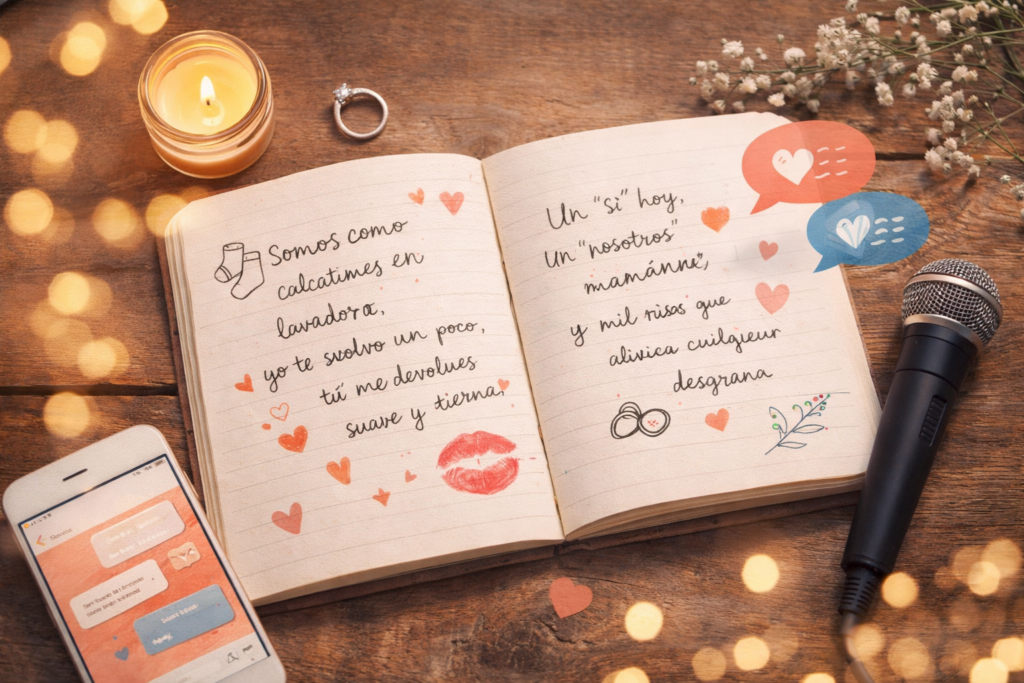 Somos como
calcatines en
lavadora,
yo te svolvo un poco,
tú me devolues
suave y tierna,
Un "si" hoy,
Un "nosotros"
mamánne,
y mil risas que
alivica cuilqieur
desgrana